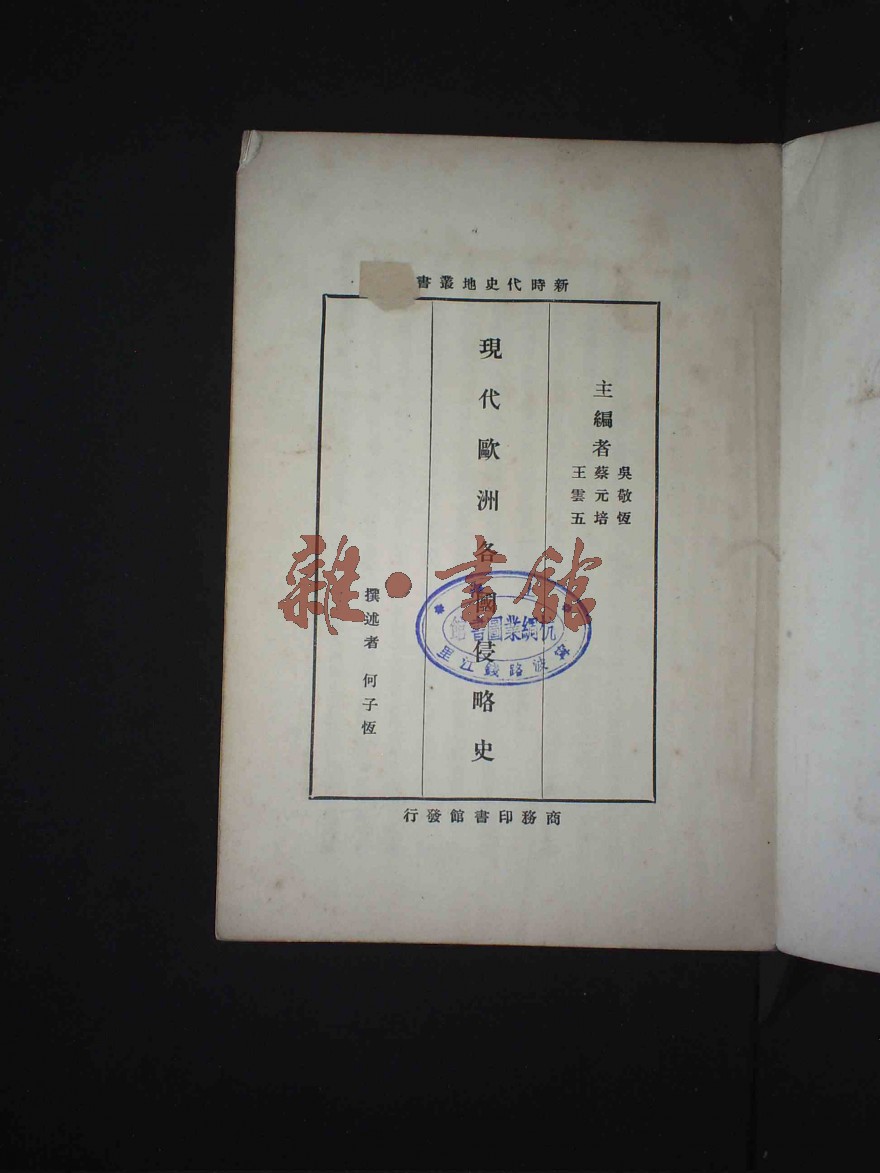 新時代史地叢書
主編者
吳敬恆
蔡元培
王雲五
現代歐洲各國侵略史
撰述者 何子恆
商務印書館發行
雜·書館
杭綢業圖書館
寧波路錢江里